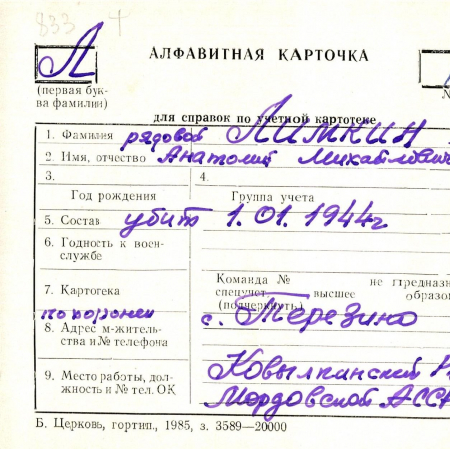 833 †
Л
АЛФАВИТНАЯ КАРТОЧКА
(первая бук-
ва фамилии)
для справок по учетной картотеке
1. Фамилия рядовой Лимкин
2. Имя, отчество Анатолий Михайлович
3. 4.
Год рождения Группа учета
5. Состав убит 1.01.1944г
6. Годность к воен-
службе
7. Картотека Команда № не предназн
спецучет высшее образов
(подчеркнуть)
похоронен с. Терезино
8. Адрес м-житель-
ства и № телефона
9. Место работы, дол-
жность и № тел. ОК
Ковылкинский
Мордовской АССР
Б. Церковь, гортип., 1985, з. 3589—20000